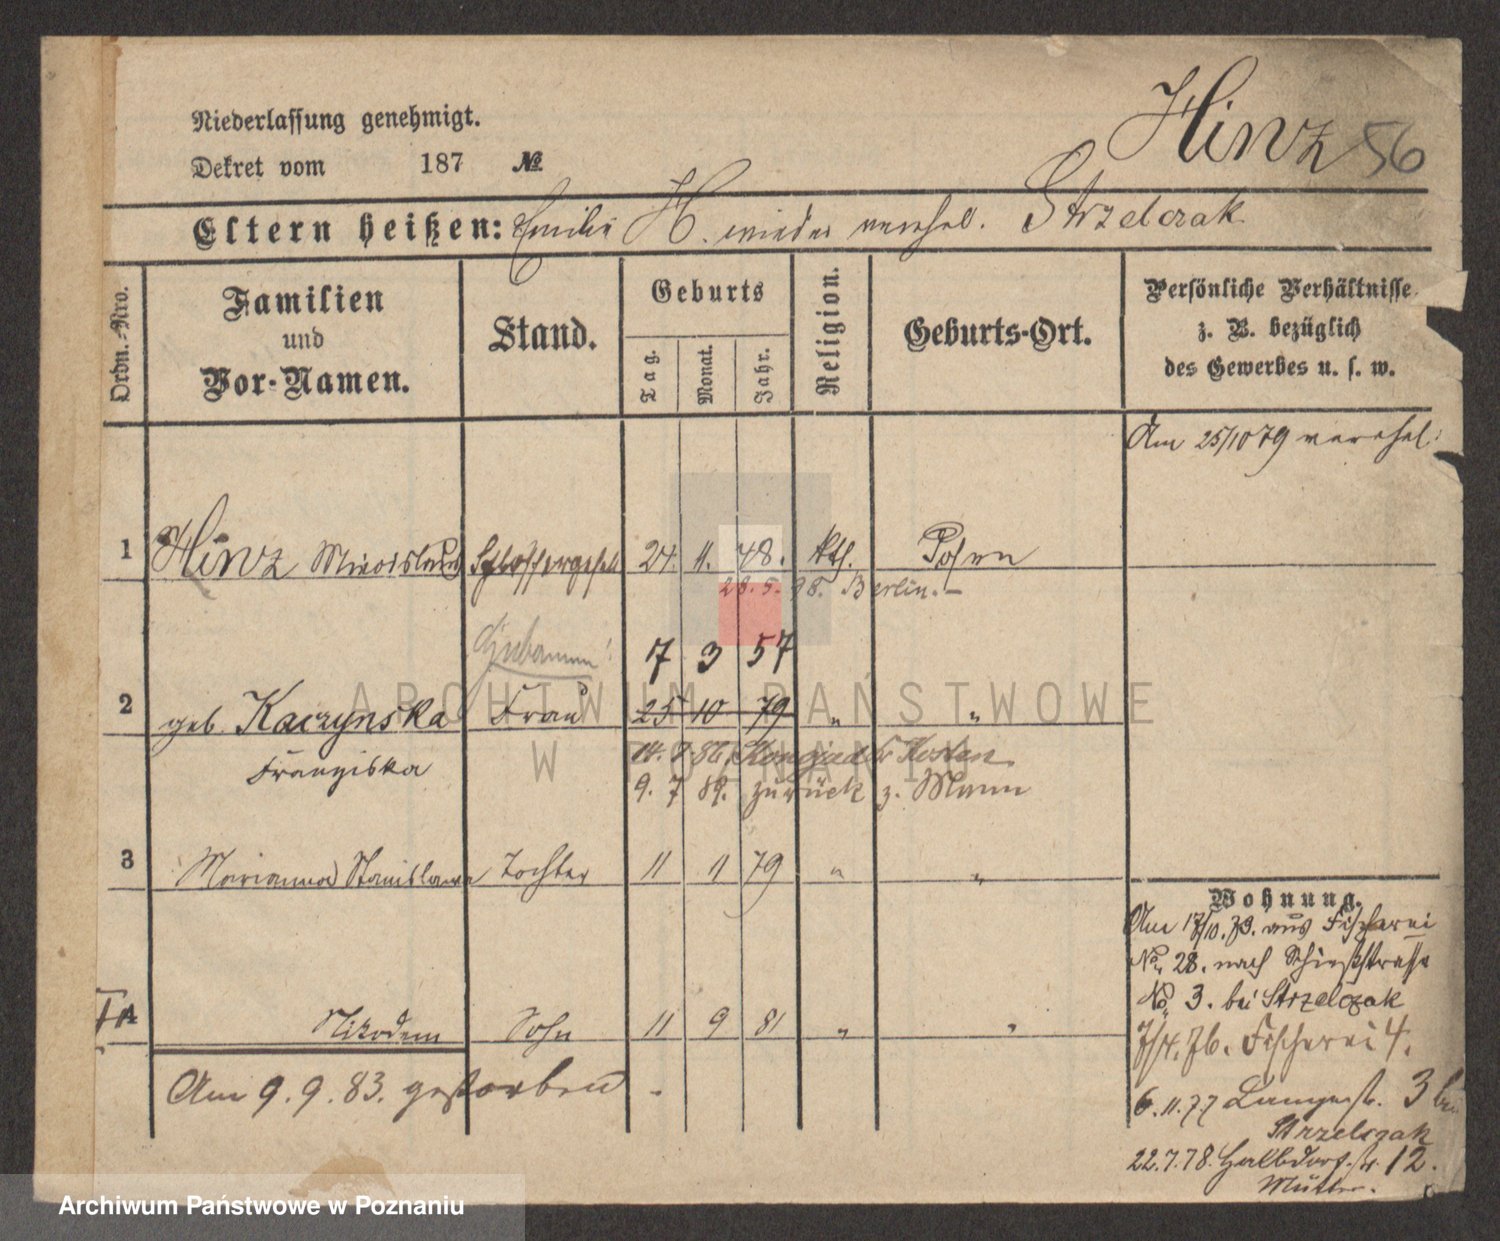 Hinz 56
Niederlassung genehmigt.
Dekret vom 187 №
Eltern heißen: Emilie H. wieder verehel. Strzelczak
Ordn.-Nro.
Familien
und
Vor-Namen.
Stand.
Geburts
Tag.
Monat.
Jahr.
Religion.
Geburts-Ort.
Persönliche Verhältnisse
z. B. bezüglich
des Gewerbes u. s. w.
Am 25/10 79 verehel.
1 Hinz Miecislaus Schlossergesell 24. 11. 48. kth. Posen
28. 5. 98. Berlin. –
17 3 57
2 geb. Kaczynska Frau 25 10 79 " "
Franziska
14. 9. 86. Kosten
9. 7 89. zurück z. Mann
3 Marianna Stanislawa Tochter 11 11 79 " "
4 Nikodem Sohn 11 9 81 " "
Am 9. 9. 83. gestorben.
Wohnung.
Am 17/10. 73. aus Fischerei
No. 28. nach Schießstrasse
No. 3. bei Strzelczak
7/4. 76. Fischerei 4.
6. 11. 77 Langestr. 3 bei
Strzelczak
22. 7. 78. Halbdorfstr. 12.
Mutter.
ARCHIWUM PAŃSTWOWE
W POZNANIU
Archiwum Państwowe w Poznaniu